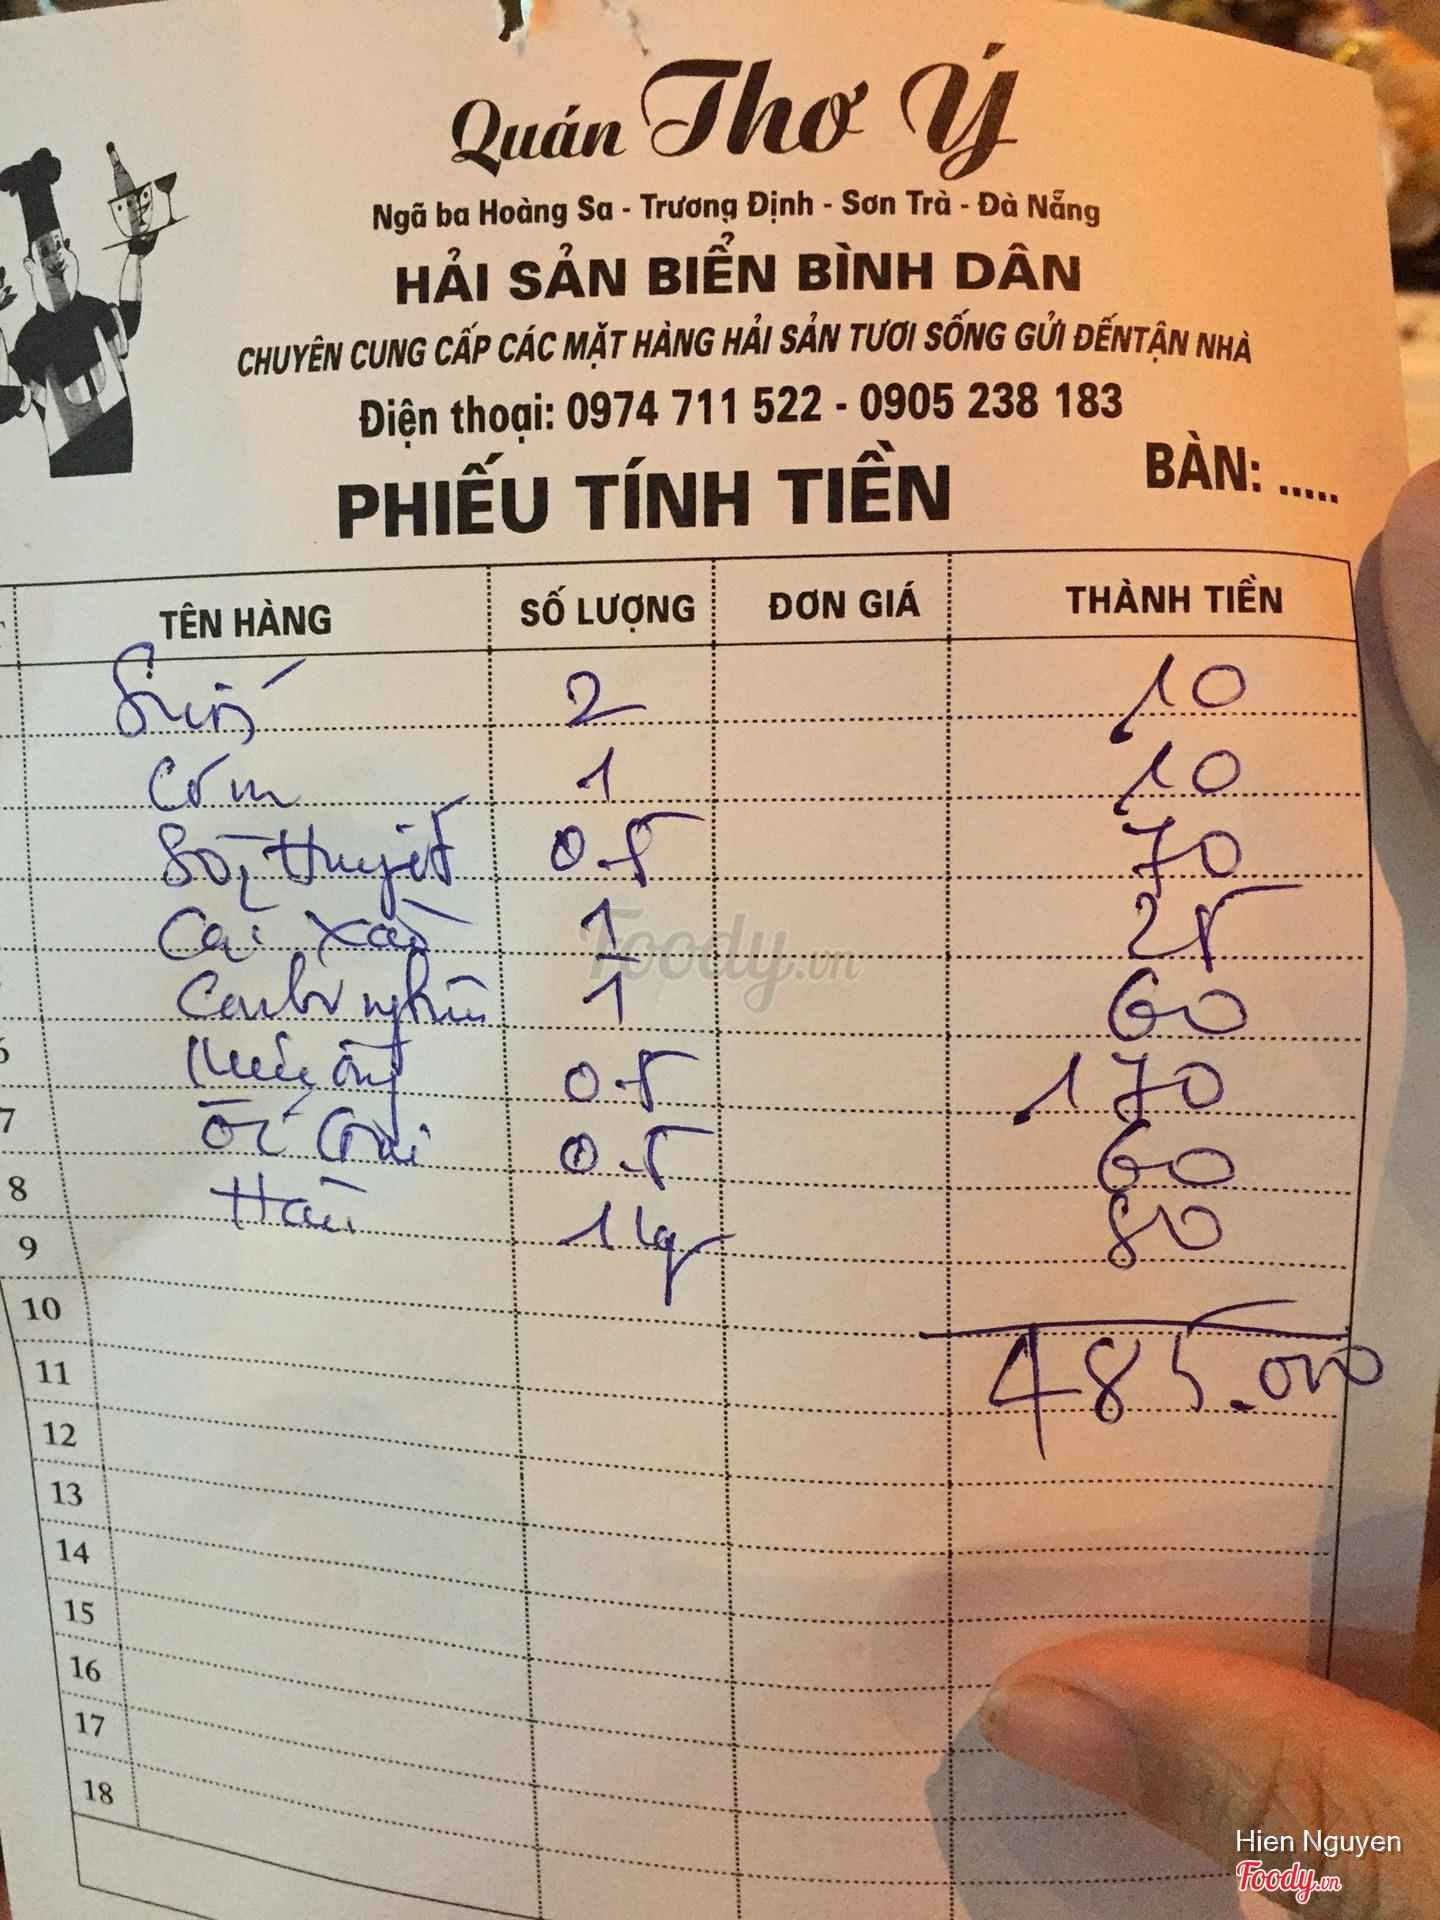 Quán Thơ Ý
Ngã ba Hoàng Sa - Trương Định - Sơn Trà - Đà Nẵng
HẢI SẢN BIỂN BÌNH DÂN
CHUYÊN CUNG CẤP CÁC MẶT HÀNG HẢI SẢN TƯƠI SỐNG GỬI ĐẾNTẬN NHÀ
Điện thoại: 0974 711 522 - 0905 238 183
PHIẾU TÍNH TIỀN BÀN: .....
TÊN HÀNG SỐ LƯỢNG ĐƠN GIÁ THÀNH TIỀN
2 10
Cơm 1 10
Sò huyết 0.5 70
Cải xào 1 25
Canh nghêu 1 60
6 0.5 170
7 Ốc 0.5 60
8 Hàu 1kg 80
9
10
485.000
11
12
13
14
15
16
17
18
Foody.vn
Hien Nguyen
Foody.vn